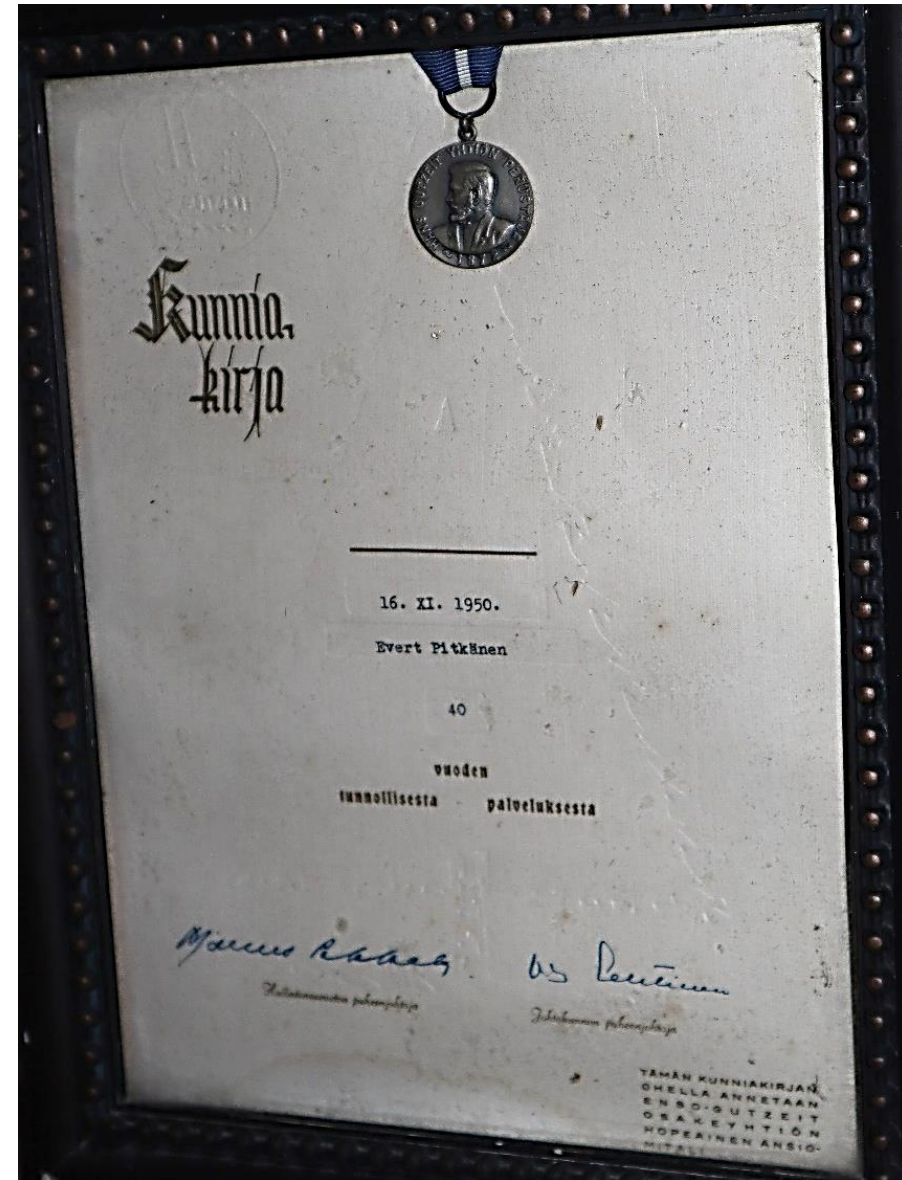 HANS GUTZEIT YHTIÖN PERUSTAJA
1872
Kunnia-
kirja
16. XI. 1950.
Evert Pitkänen
40
vuoden
tunnollisesta palveluksesta
Hallintoneuvoston puheenjohtaja
Johtokunnan puheenjohtaja
TÄMÄN KUNNIAKIRJAN
OHELLA ANNETAAN
ENSO-GUTZEIT
OSAKEYHTIÖN
HOPEAINEN ANSIO-
MITALI